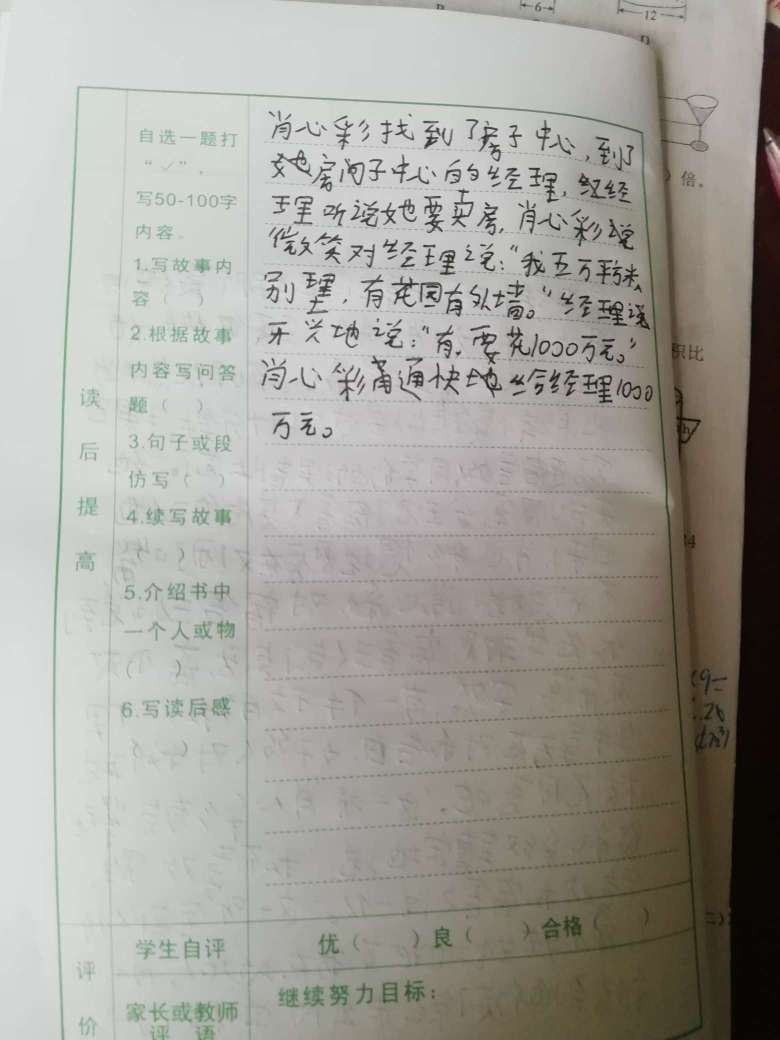 6
12
D
倍。
积比
自选一题打
“✓”，
写50-100字
内容。
1.写故事内
容（ ）
2.根据故事
内容写问答
题（ ）
3.句子或段
仿写（ ）
4.续写故事
（ ）
5.介绍书中
一个人或物
（ ）
6.写读后感
读后提高
肖心彩找到了房子中心，到了
她房间子中心的经理，经
理听说她要卖房，肖心彩说
微笑对经理说：“我五万平方米
别墅，有花园有外墙。”经理说
开兴地说：“有，要花1000万元。”
肖心彩痛通快地给经理1000
万元。
评价
学生自评
优（ ）良（ ）合格（ ）
家长或教师
评 语
继续努力目标：